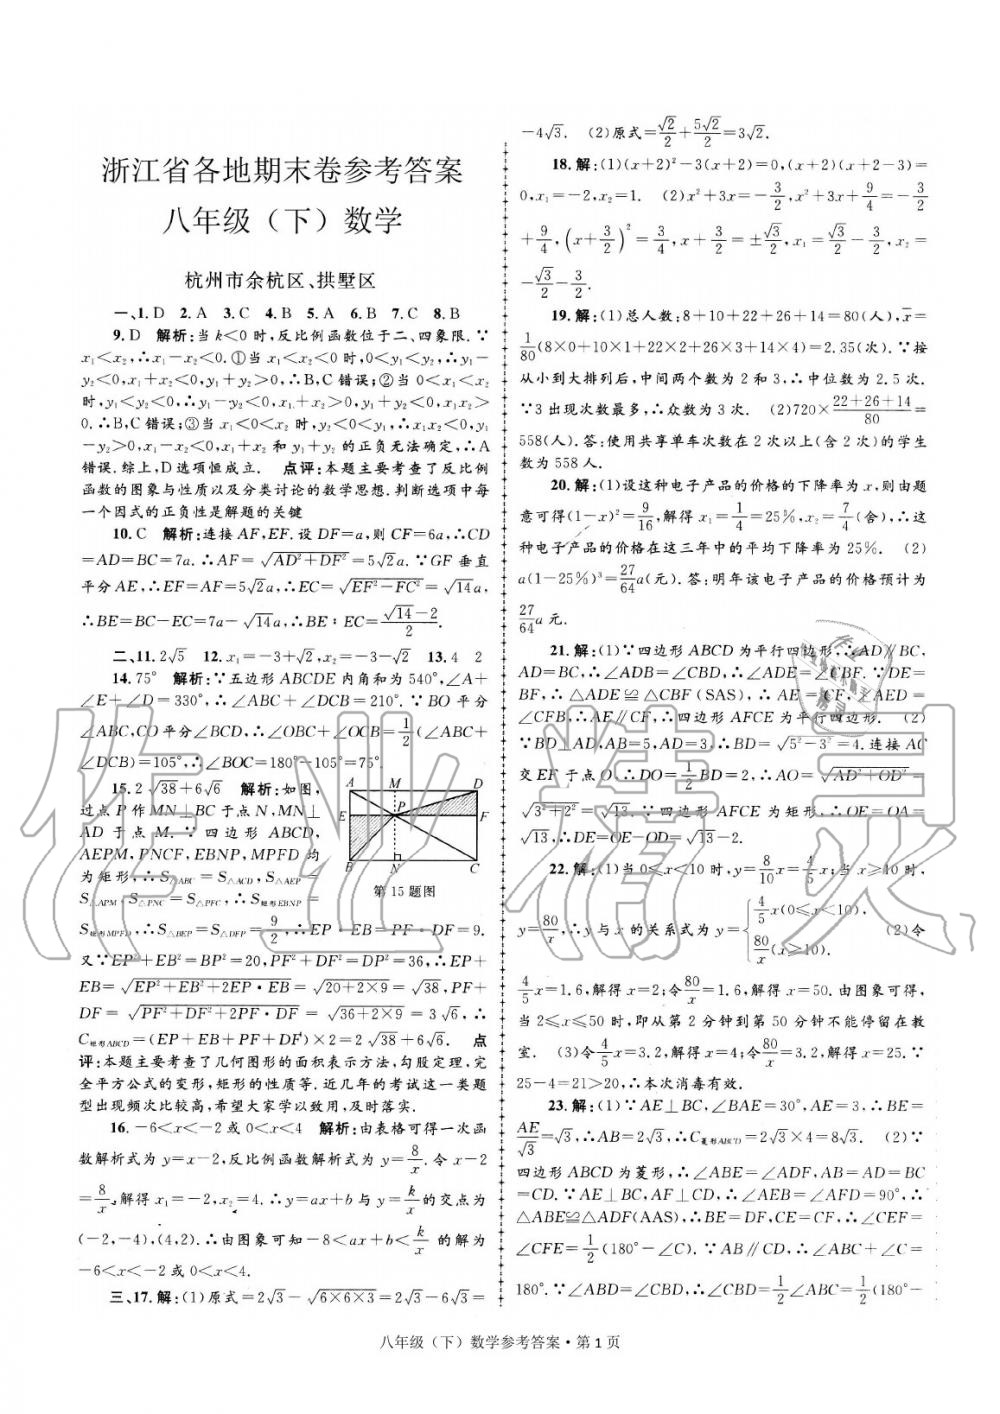 浙江省各地期末卷参考答案
八年级（下）数学
杭州市余杭区、拱墅区
一、1. D  2. A  3. C  4. B  5. A  6. B  7. C  8. B
9. D  解析:当 k<0 时,反比例函数位于二、四象限.∵
x₁<x₂,∴x₁-x₂<0.①当 x₁<x₂<0 时,0<y₁<y₂,∴y₁-
y₂<0,x₁+x₂<0,y₁+y₂>0,∴B,C 错误;②当 0<x₁<x₂
时,y₁<y₂<0,∴y₁-y₂<0,x₁+x₂>0,y₁+y₂<0,x₁x₂>
0.∴B,C 错误;③当 x₁<0<x₂ 时,y₂<0<y₁,∴x₁x₂<0,y₁
-y₂>0,x₁-x₂<0,x₁+x₂ 和 y₁+y₂ 的正负无法确定,∴A
错误.综上,D 选项恒成立.  点评:本题主要考查了反比例
函数的图象与性质以及分类讨论的数学思想.判断选项中每
一个因式的正负性是解题的关键
10. C  解析:连接 AF,EF.设 DF=a,则 CF=6a,∴CD
=AD=BC=7a.∴AF=√(AD²+DF²)=5√2a.∵GF 垂直
平分 AE,∴EF=AF=5√2a,∴EC=√(EF²-FC²)=√14a,
∴BE=BC-EC=7a-√14a,∴BE∶EC=(√14-2)/2.
二、11. 2√5  12. x₁=-3+√2,x₂=-3-√2  13. 4  2
14. 75°  解析:∵五边形 ABCDE 内角和为 540°,∠A+
∠E+∠D=330°,∴∠ABC+∠DCB=210°.∵BO 平分
∠ABC,CO 平分∠BCD,∴∠OBC+∠OCB=1/2(∠ABC+
∠DCB)=105°,∴∠BOC=180°-105°=75°.
15. 2√38+6√6  解析:如图,
过点 P 作 MN⊥BC 于点 N,MN⊥
AD 于点 M.∵四边形 ABCD,
AEPM,PNCF,EBNP,MPFD 均
为矩形,∴S△ABC=S△ACD,S△AEP=
S△APM,S△PNC=S△PFC,∴S矩形EBNP=
S矩形MPFD,∴S△BEP=S△DFP=9/2,∴EP·EB=PF·DF=9.
A M D
E P F
B N C
第 15 题图
又∵EP²+EB²=BP²=20,PF²+DF²=DP²=36,∴EP+
EB=√(EP²+EB²+2EP·EB)=√(20+2×9)=√38,PF+
DF=√(PF²+DF²+2PF·DF)=√(36+2×9)=3√6,∴
C矩形ABCD=(EP+EB+PF+DF)×2=2√38+6√6.  点
评:本题主要考查了几何图形的面积表示方法,勾股定理,完
全平方公式的变形,矩形的性质等.近几年的考试这一类题
型出现频次比较高,希望大家学以致用,及时落实.
16. -6<x<-2或0<x<4  解析:由表格可得一次函
数解析式为 y=x-2,反比例函数解析式为 y=8/x.令 x-2
=8/x,解得 x₁=-2,x₂=4.∴y=ax+b 与 y=k/x的交点为
(-2,-4),(4,2).∴由图象可知-8<ax+b<k/x 的解为
-6<x<-2 或 0<x<4.
三、17. 解:(1)原式=2√3-√(6×6×3)=2√3-6√3=
-4√3.  (2)原式=√2/2+5√2/2=3√2.
18. 解:(1)(x+2)²-3(x+2)=0,(x+2)(x+2-3)=
0,x₁=-2,x₂=1.  (2)x²+3x=-3/2,x²+3x+9/4=-3/2
+9/4,(x+3/2)²=3/4,x+3/2=±√3/2,x₁=√3/2-3/2,x₂=
-√3/2-3/2.
19. 解:(1)总人数:8+10+22+26+14=80(人),x̄=
1/80(8×0+10×1+22×2+26×3+14×4)=2.35(次).∵按
从小到大排列后,中间两个数为 2 和 3,∴中位数为 2.5 次.
∵3 出现次数最多,∴众数为 3 次.  (2)720×(22+26+14)/80=
558(人).答:使用共享单车次数在 2 次以上(含 2 次)的学生
数为 558 人.
20. 解:(1)设这种电子产品的价格的下降率为 x,则由题
意可得(1-x)²=9/16,解得 x₁=1/4=25%,x₂=7/4(舍),∴这
种电子产品的价格在这三年中的平均下降率为 25%.  (2)
a(1-25%)³=27/64a(元).答:明年该电子产品的价格预计为
27/64a 元.
21. 解:(1)∵四边形 ABCD 为平行四边形,∴AD∥BC,
AD=BC,∴∠ADB=∠CBD,∴∠ADE=∠CBF.∵DE=
BF,∴△ADE≌△CBF(SAS),∴AE=CF,∠AED=
∠CFB,∴AE∥CF,∴四边形 AFCE 为平行四边形.  (2)
∵BD⊥AD,AB=5,AD=3,∴BD=√(5²-3²)=4.连接 AC
交 EF 于点 O,∴DO=1/2BD=2,∴AO=√(AD²+OD²)=
√(3²+2²)=√13.∵四边形 AFCE 为矩形,∴OE=OA=
√13,∴DE=OE-OD=√13-2.
22. 解:(1)当 0≤x<10 时,y=8/10x=4/5x;当 x≥10 时,
y=80/x,∴y 与 x 的关系式为 y={4/5x(0≤x<10), 80/x(x≥10).  (2)令
4/5x=1.6,解得 x=2;令80/x=1.6,解得 x=50.由图象可得,
当 2≤x≤50 时,即从第 2 分钟到第 50 分钟不能停留在教
室.  (3)令4/5x=3.2,解得 x=4;令80/x=3.2,解得 x=25.∵
25-4=21>20,∴本次消毒有效.
23. 解:(1)∵AE⊥BC,∠BAE=30°,AE=3,∴BE=
AE/√3=√3,∴AB=2√3,∴C菱形ABCD=2√3×4=8√3.  (2)∵
四边形 ABCD 为菱形,∴∠ABE=∠ADF,AB=AD=BC
=CD.∵AE⊥BC,AF⊥CD,∴∠AEB=∠AFD=90°,∴
△ABE≌△ADF(AAS),∴BE=DF,CE=CF,∴∠CEF=
∠CFE=1/2(180°-∠C).∵AB∥CD,∴∠ABC+∠C=
180°.∵∠ABD=∠CBD,∴∠CBD=1/2∠ABC=1/2(180°-
八年级（下）数学参考答案·第 1 页
作业精灵